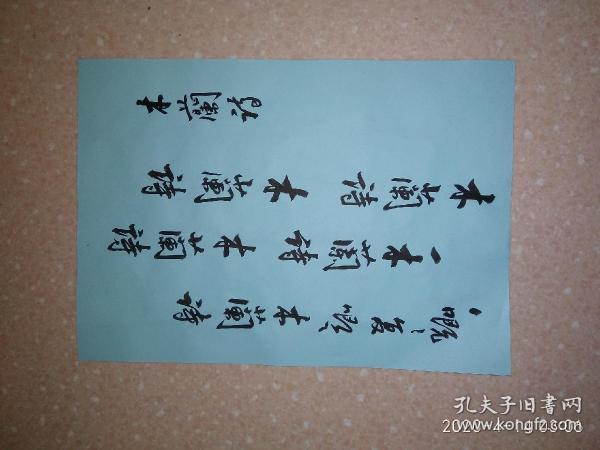 木蘭詩
木蘭詩木蘭詩
一木蘭詩木蘭詩
唧唧復唧唧木蘭詩
孔夫子旧书网
www.kongfz.com